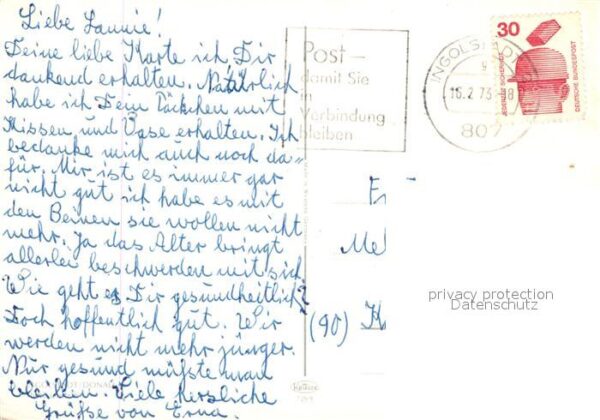 Liebe Lannie!
Deine liebe Karte ich Dir
dankend erhalten. Natürlich
habe ich Dein Päckchen mit
Kissen, und Vase erhalten. Ich
bedanke mich auch noch da=
für. Mir ist es immer gar
nicht gut ich habe es mit
den Beinen sie wollen nicht
mehr. Ja das Alter bringt
allerlei beschwerden mit sich.
Wie geht es Dir gesundheitlich?
Doch hoffentlich gut. Wir
werden nicht mehr jünger.
Nur gesund müsste man
bleiben. Viele herzliche
Grüsse von Erna.
Post –
damit Sie
in
Verbindung
bleiben
INGOLSTADT
16.2.73-18
807
30
JEDERZEIT SICHERHEIT
DEUTSCHE BUNDESPOST
(90)
privacy protection
Datenschutz